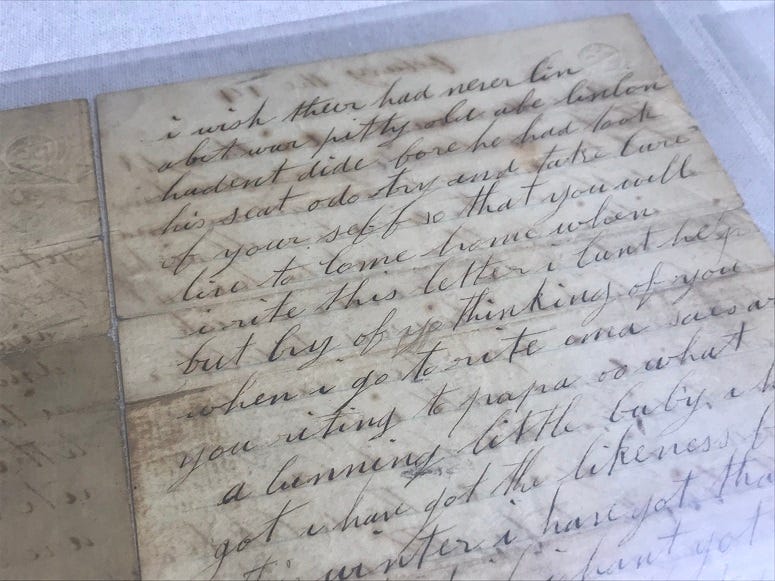 i wish their had never bin
abit war pitty old abe linlon
hadent dide bore he had took
his seat o do try and take care
of your self so that you will
live to come home when
i rite this letter i cant help
but cry of thinking of you
when i go to rite ama saes ar
you riting to papa oo what
a cunning little baby i h
got i have got the likeness
winter i have got tha
i hant got